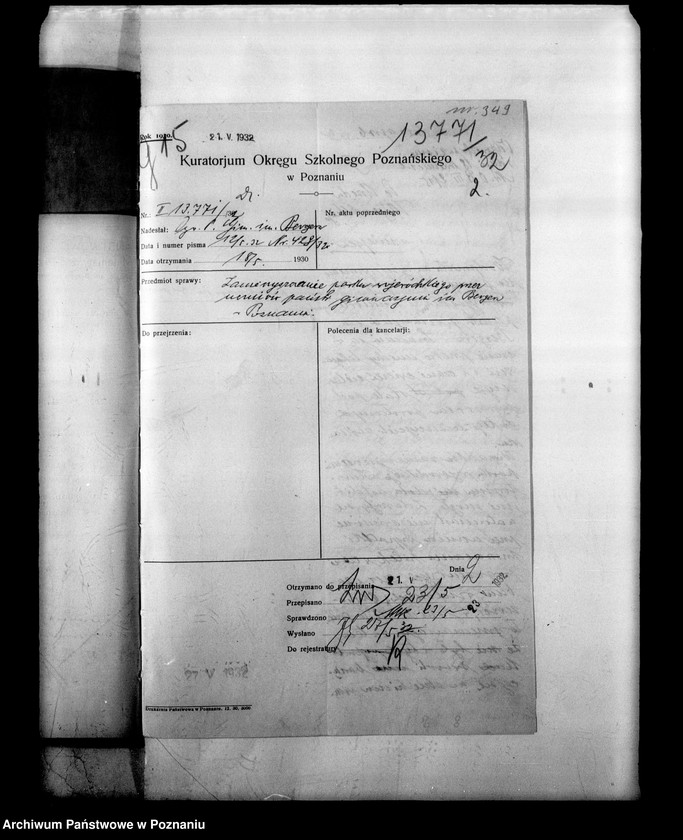 nr. 349
Rok 1930.
915
21. V. 1932
13771/32
Kuratorjum Okręgu Szkolnego Poznańskiego
w Poznaniu
2.
Nr.: I 13771/32
Nr. aktu poprzedniego
Nadesłał: P. Gim. im. Berger
Data i numer pisma 12/5. 32 Nr. 428/32
Data otrzymania 18/5. 1930
Przedmiot sprawy: parku przez
uczniów państw. gimnazjum im. Berger
w Poznaniu.
Do przejrzenia:
Polecenia dla kancelarji:
Dnia 2
Otrzymano do przepisania 21. V 1932
Przepisano 23/5
Sprawdzono 23/5 23
Wysłano 27/5 32.
Do rejestratury
Drukarnia Państwowa w Poznaniu. 12. 30.
Archiwum Państwowe w Poznaniu